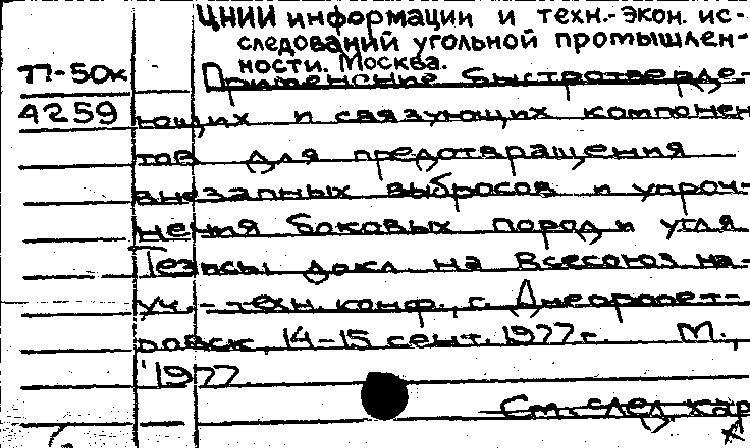 ЦНИИ информации и техн.-экон. ис-
следований угольной промышлен-
ности. Москва.
77-50к Применение быстротверде-
4259 ющих и связующих компонен
тов для предотвращения
внезапных выбросов и упроч-
нения боковых пород и угля
Тезисы докл. на Всесоюз на-
уч.-техн. конф., г. Днепропет-
ровск, 14-15 сент. 1977 г. М.,
1977.
См. след кар